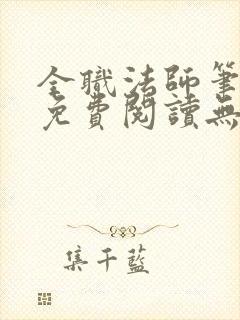 全職法師筆
免費閱讀無
集千藍